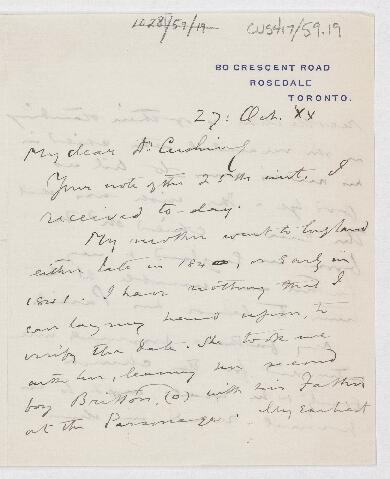 1028/59/19 CUS417/59.19
80 CRESCENT ROAD
ROSEDALE
TORONTO.
27: Oct. XX
My dear Dr Cushing
Your note of the 25th inst. I
received to-day.
My mother went to England
either late in 1840, or early in
1841. I have nothing that I
can lay my hand upon, to
verify the date. She took me
with her, leaving her second
boy Britton, (O) with his Father
at the Parsonage. My Earliest